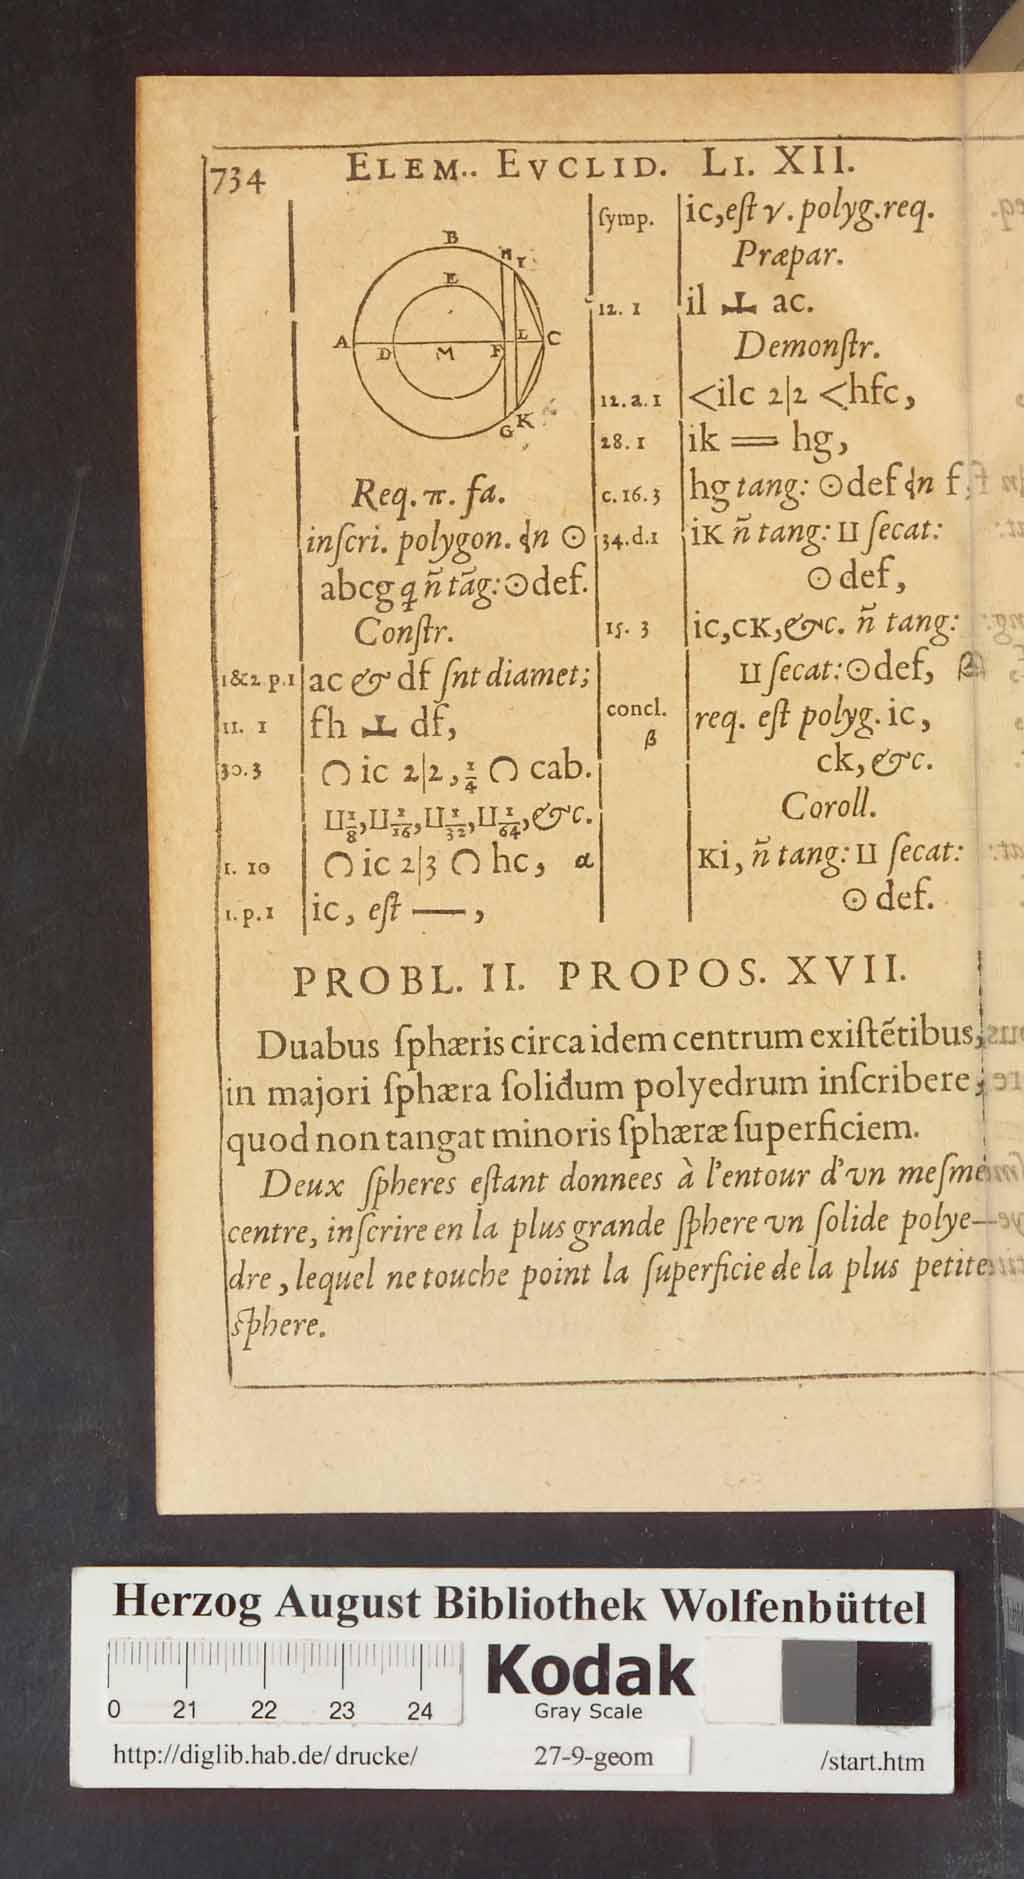 734 ELEM.. EVCLID. LI. XII.
B
H I
E
A D M F L C
G K
Req. π. fa.
inſcri. polygon. n ⊙
abcg q ñ tãg: ⊙ def.
Conſtr.
1&2 p.1 ac & df ſnt diamet;
11. 1 fh ⊥ df,
30.3 ◠ ic 2|2, 1/4 ◠ cab.
⊔ 1/8, ⊔ 1/16, ⊔ 1/32, ⊔ 1/64, &c.
1. 10 ◠ ic 2|3 ◠ hc, α
1.p.1 ic, eſt —,
ſymp. ic, eſt γ. polyg. req.
Præpar.
12. 1 il ⊥ ac.
Demonſtr.
12.a.1 <ilc 2|2 <hfc,
28. 1 ik = hg,
c.16.3 hg tang: ⊙ def n f,
34.d.1 iK ñ tang: ⊔ ſecat:
⊙ def,
15. 3 ic, cK, &c. ñ tang:
⊔ ſecat: ⊙ def, β
concl. req. eſt polyg. ic,
β ck, &c.
Coroll.
Ki, ñ tang: ⊔ ſecat:
⊙ def.
PROBL. II. PROPOS. XVII.
Duabus ſphæris circa idem centrum exiſtẽtibus,
in majori ſphæra ſolidum polyedrum inſcribere,
quod non tangat minoris ſphæræ ſuperficiem.
Deux ſpheres eſtant donnees à l'entour d'vn meſme
centre, inſcrire en la plus grande ſphere vn ſolide polye-
dre, lequel ne touche point la ſuperficie de la plus petite
ſphere.
Herzog August Bibliothek Wolfenbüttel
0 21 22 23 24
Kodak
Gray Scale
http://diglib.hab.de/drucke/ 27-9-geom /start.htm